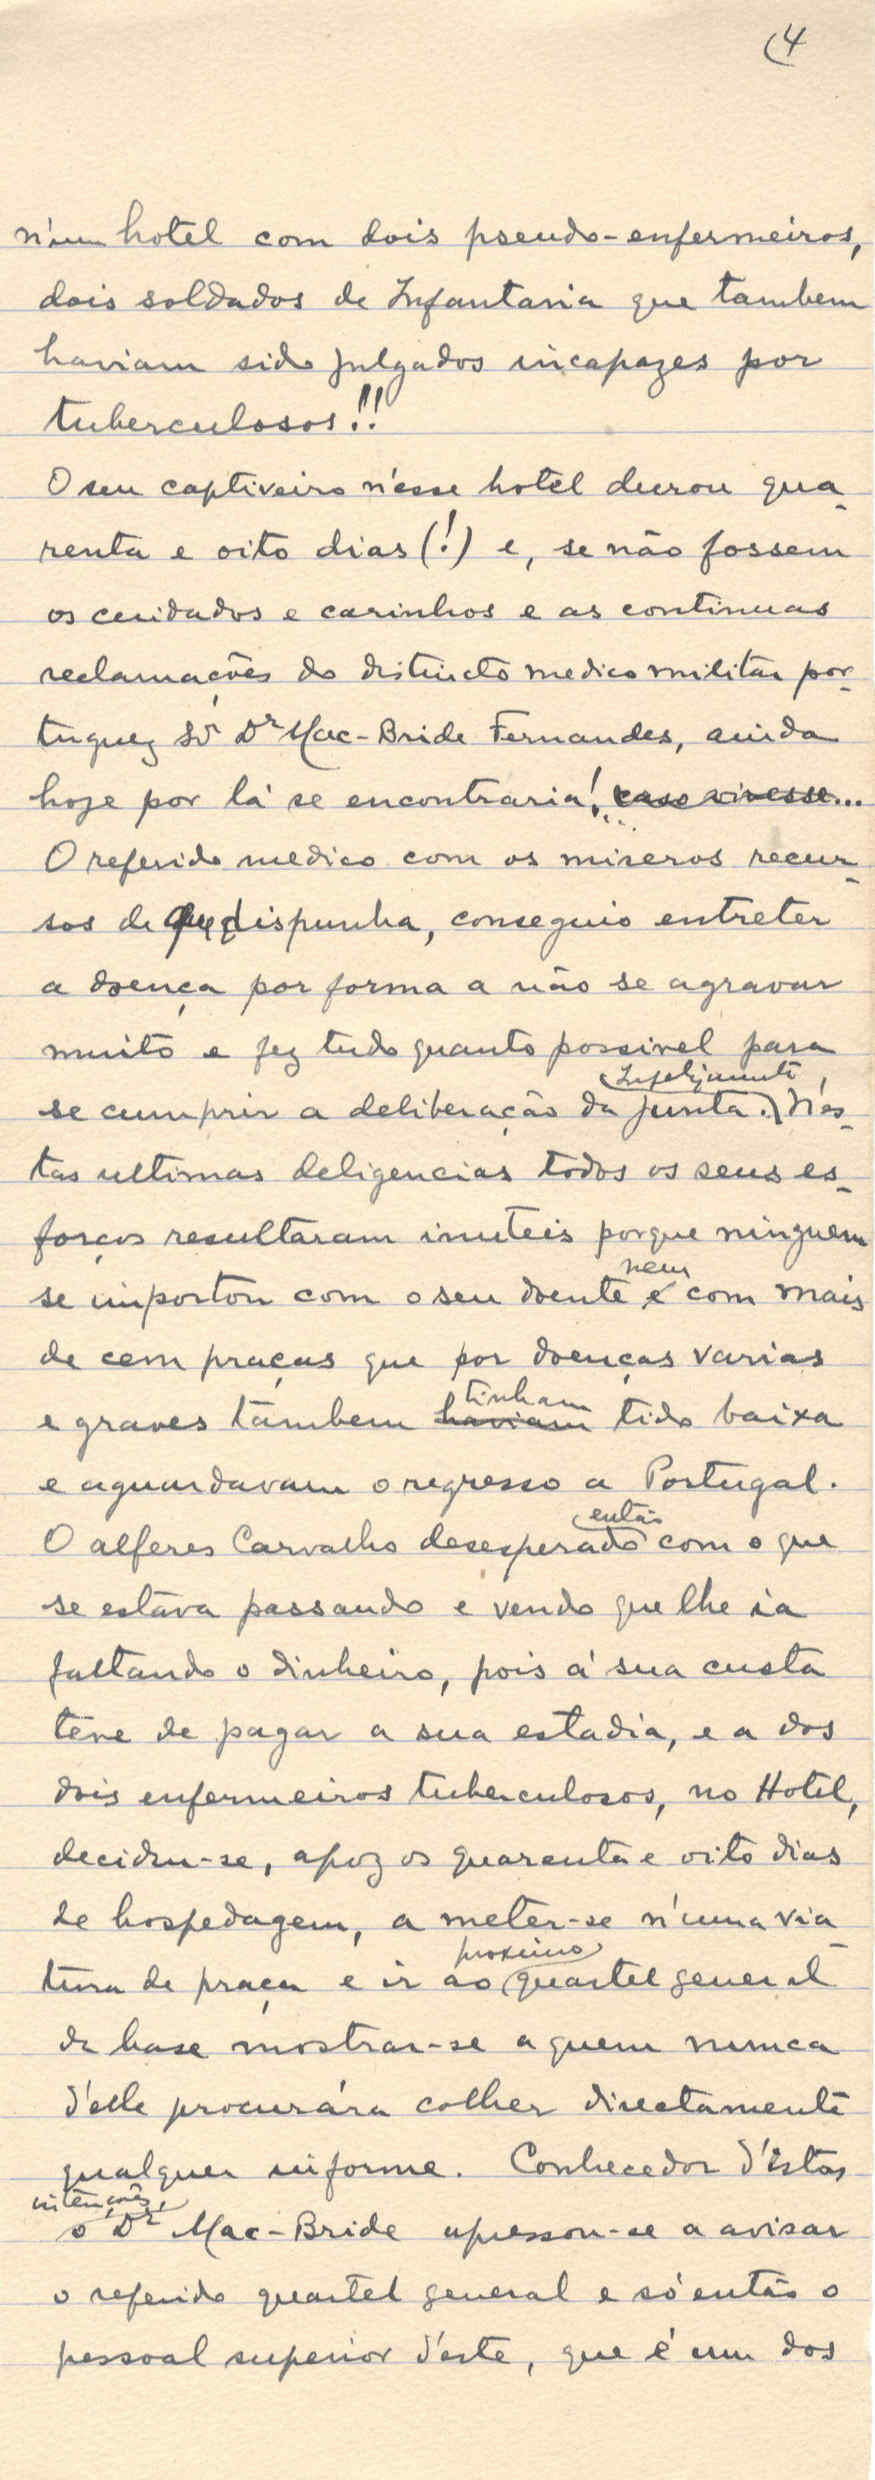 (4
n'um hotel com dois pseudo-enfermeiros,
dois soldados de Infantaria que tambem
haviam sido julgados incapazes por
tuberculosos!!
O seu captiveiro n'esse hotel durou qua-
renta e oito dias (!) e, se não fossem
os cuidados e carinhos e as continuas
reclamações do distincto medico militar por-
tuguez Sr Dr Mac-Bride Fernandes, ainda
hoje por lá se encontraria! caso vivesse...
O referido medico com os miseros recur-
sos de que dispunha, conseguio entreter
a doença por forma a não se agravar
muito e fez tudo quanto possivel para
Infelizmente,
se cumprir a deliberação da junta. N'es-
tas ultimas deligencias todos os seus es-
forços resultaram inuteis porque ninguem
nem
se importou com o seu doente e com mais
de cem praças que por doenças varias
tinham
e graves tambem haviam tido baixa
e aguardavam o regresso a Portugal.
então
O alferes Carvalho desesperado com o que
se estava passando e vendo que lhe ia
faltando o dinheiro, pois á sua custa
teve de pagar a sua estadia, e a dos
dois enfermeiros tuberculosos, no Hotel,
decidiu-se, apoz os quarenta e oito dias
de hospedagem, a meter-se n'uma via-
proximo
tura de praça e ir ao quartel general
da base mostrar-se a quem nunca
d'elle procurára colher directamente
qualquer informe. Conhecedor d'estas
intenções,
o Dr Mac-Bride apressou-se a avisar
o referido quartel general e só então o
pessoal superior d'este, que é um dos